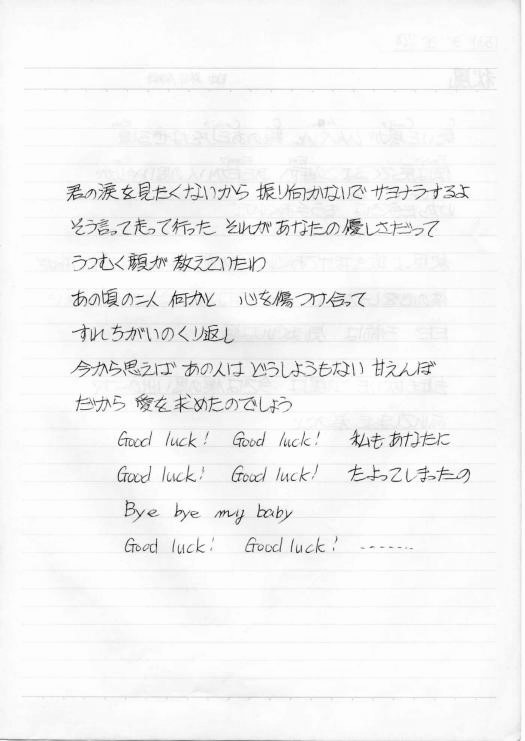 君の涙を見たくないから 振り向かないで サヨナラするよ
そう言って走って行った それが あなたの優しさだって
うつむく顔が 教えていたわ
あの頃の二人 何かと 心を傷つけ合って
すれちがいのくり返し
今から思えば あの人は どうしようもない 甘えんぼ
だから 愛を求めたのでしょう
Good luck! Good luck! 私もあなたに
Good luck! Good luck! たよってしまったの
Bye bye my baby
Good luck! Good luck! ‥‥‥